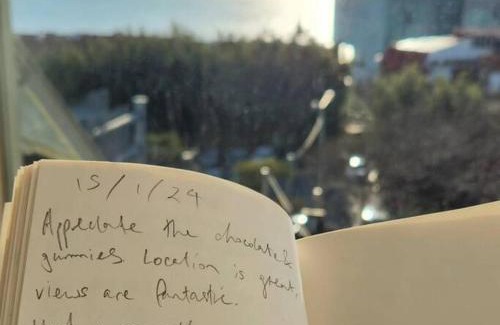 15/1/24
Appreciate the chocolate &
gummies. Location is great,
views are fantastic.